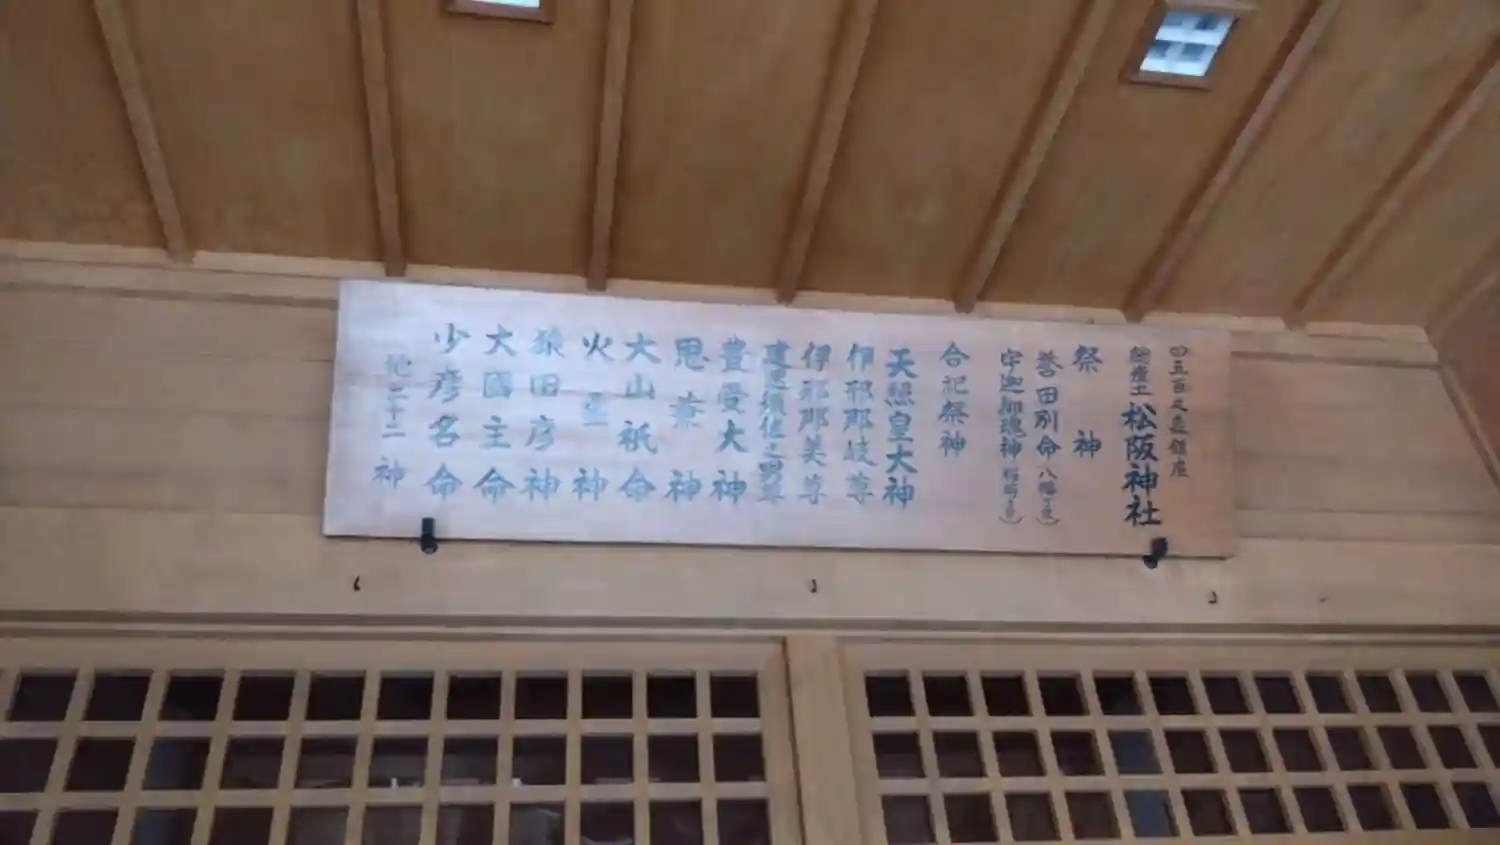 四五百之森鎮座
総産土 松阪神社
祭 神
誉田別命（八幡さま）
宇迦御魂神（稲荷さま）
合祀祭神
天照皇大神
伊邪那岐尊
伊邪那美尊
建速須佐之男尊
豊受大神
思兼神
大山祇命
火産神
猿田彦神
大國主命
少彦名命
他二十二神